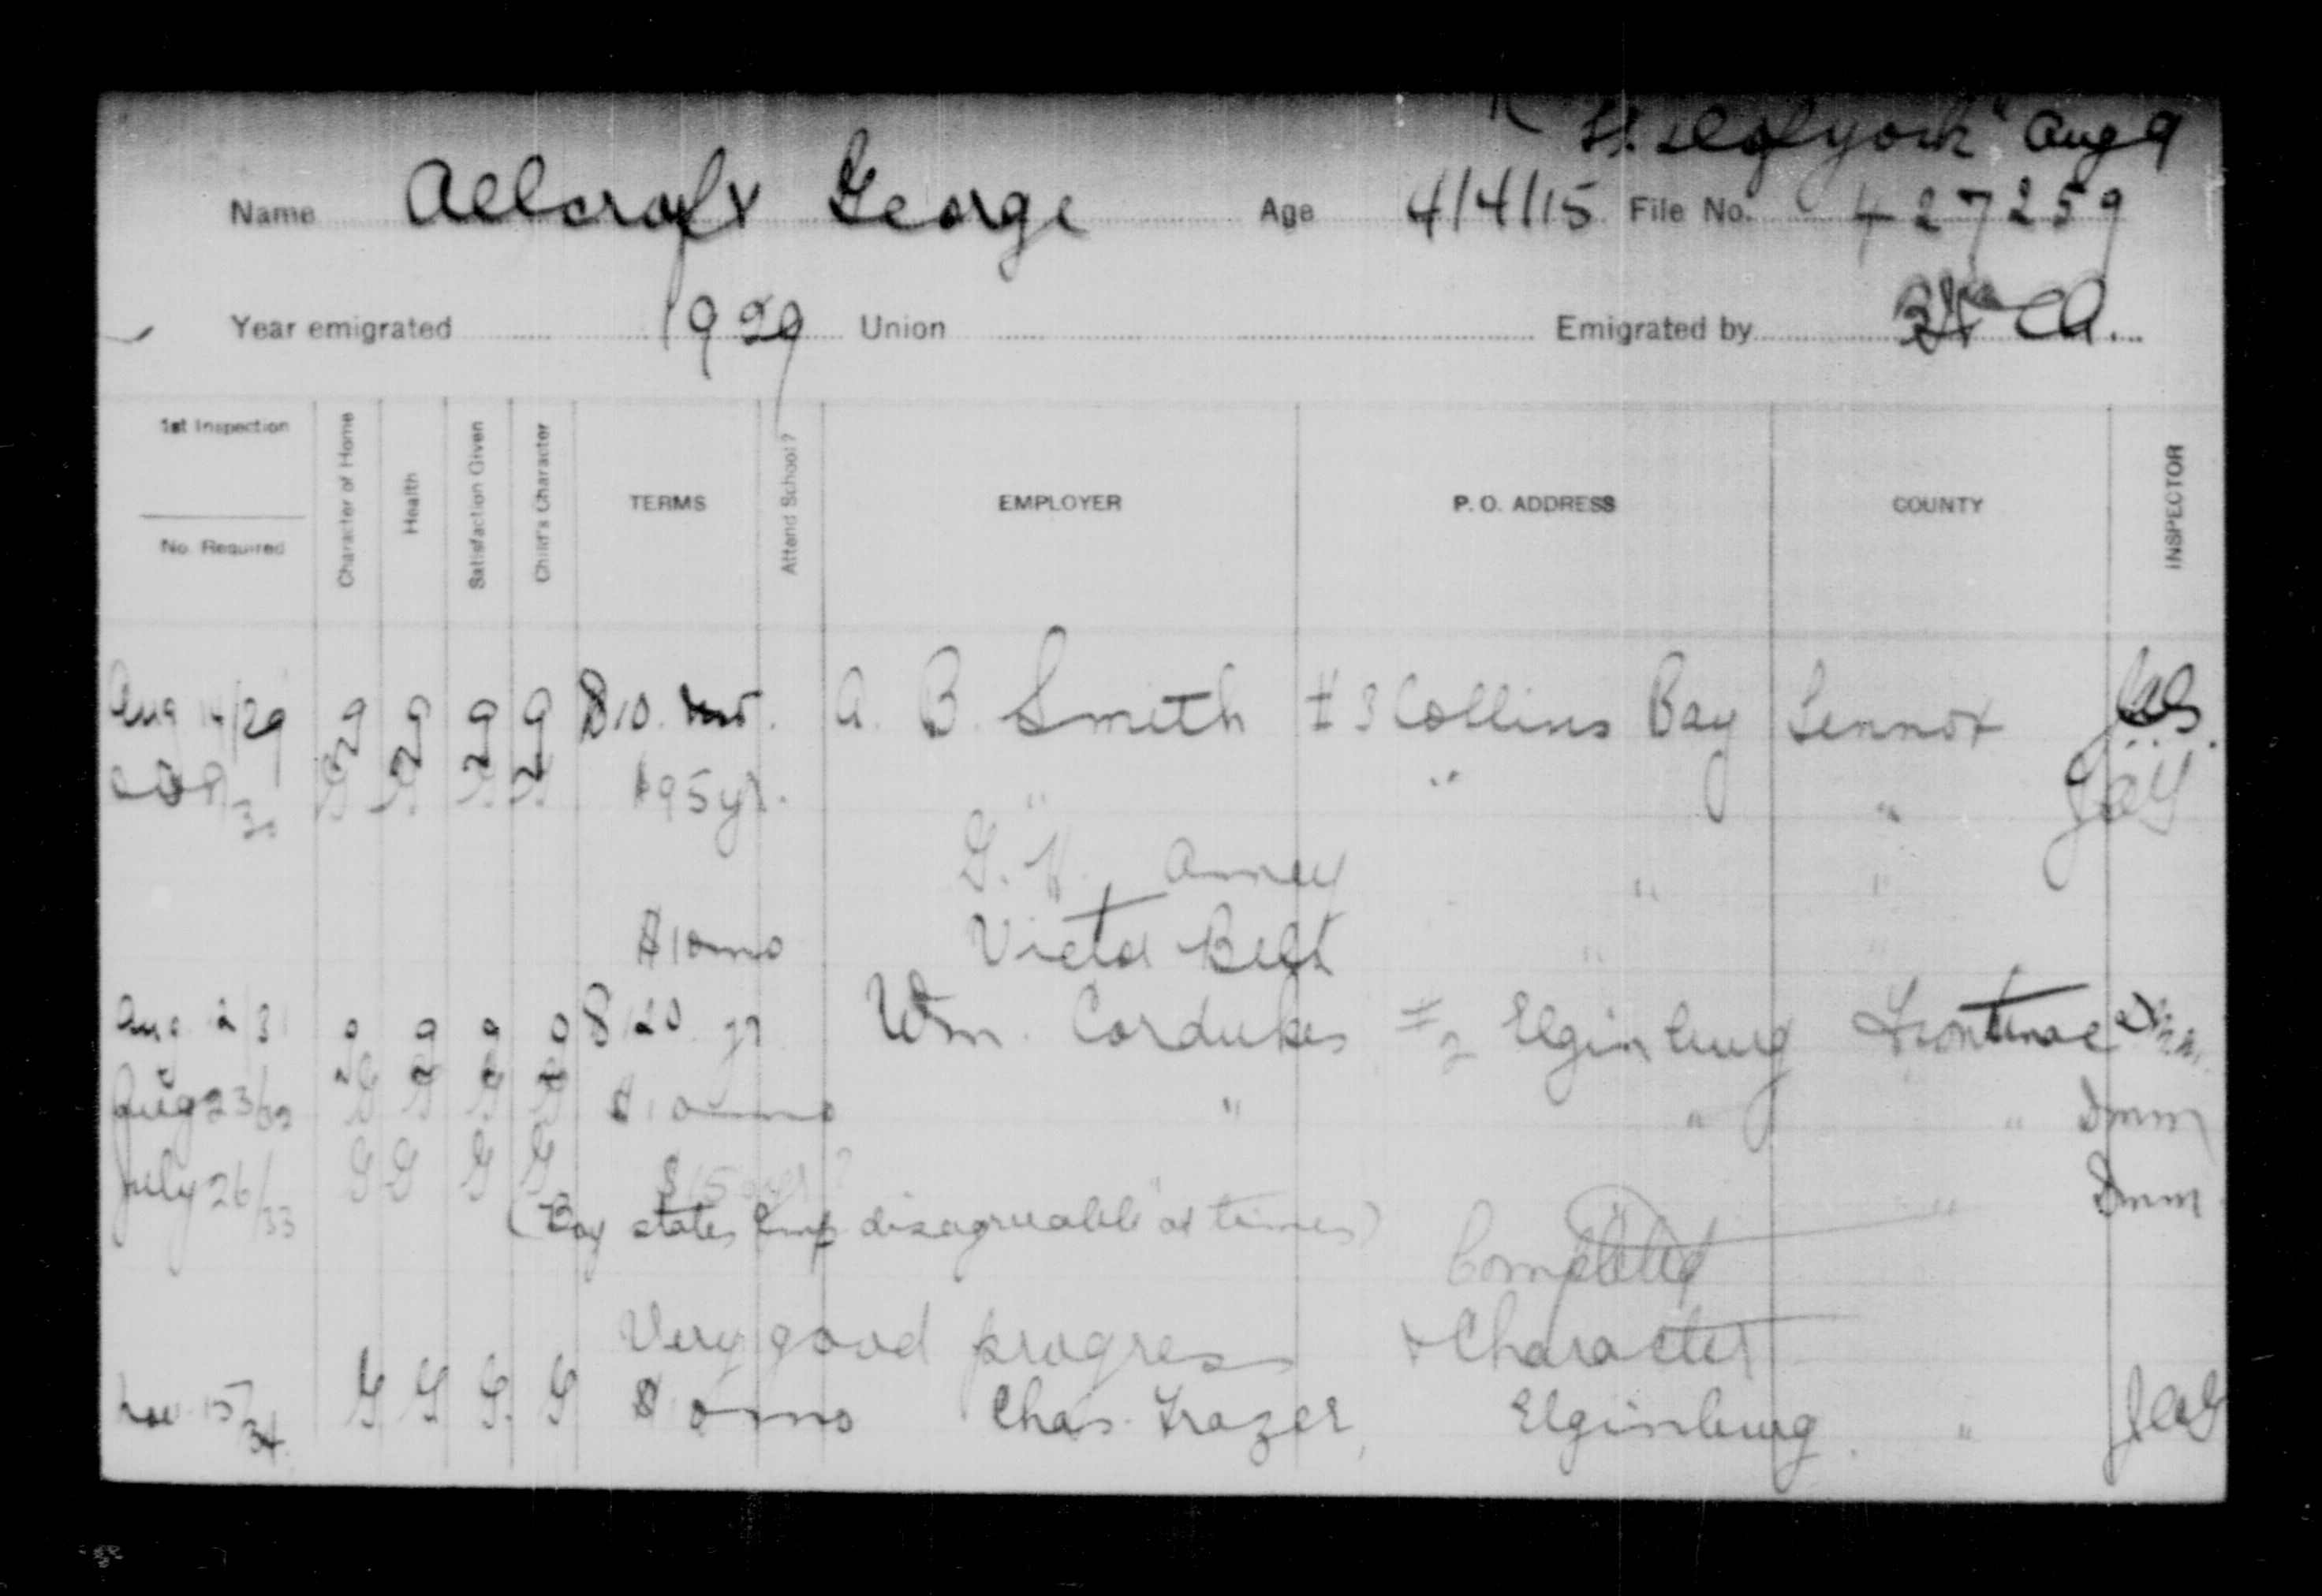 " of york" Aug 9
Name Allcroft George Age 4/4/15 File No. 427259
Year emigrated 1929 Union Emigrated by C.A.
1st Inspection
No. Required
Character of Home
Health
Satisfaction Given
Child's Character
TERMS
Attend School?
EMPLOYER
P. O. ADDRESS
COUNTY
INSPECTOR
Aug 14/29 g g g g $10. A. B. Smith #3 Collins Bay Lennox
30 G G G G $95 yr. " " "
G. H. Amey " "
$10 mo Victor Belt " "
Aug 12 31 g g g g $120 yr Wm. Cordukes #2 Elginburg Frontenac
Aug 23/32 G G G G $10 mo " " " Dmm
July 26/33 G G G G $ " " Dmm
(Boy states Emp "disagreeable" at times)
Completed
Very good progress & Character
Nov 15/34 G G G. G $10 mo Chas. Frazer, Elginburg. "